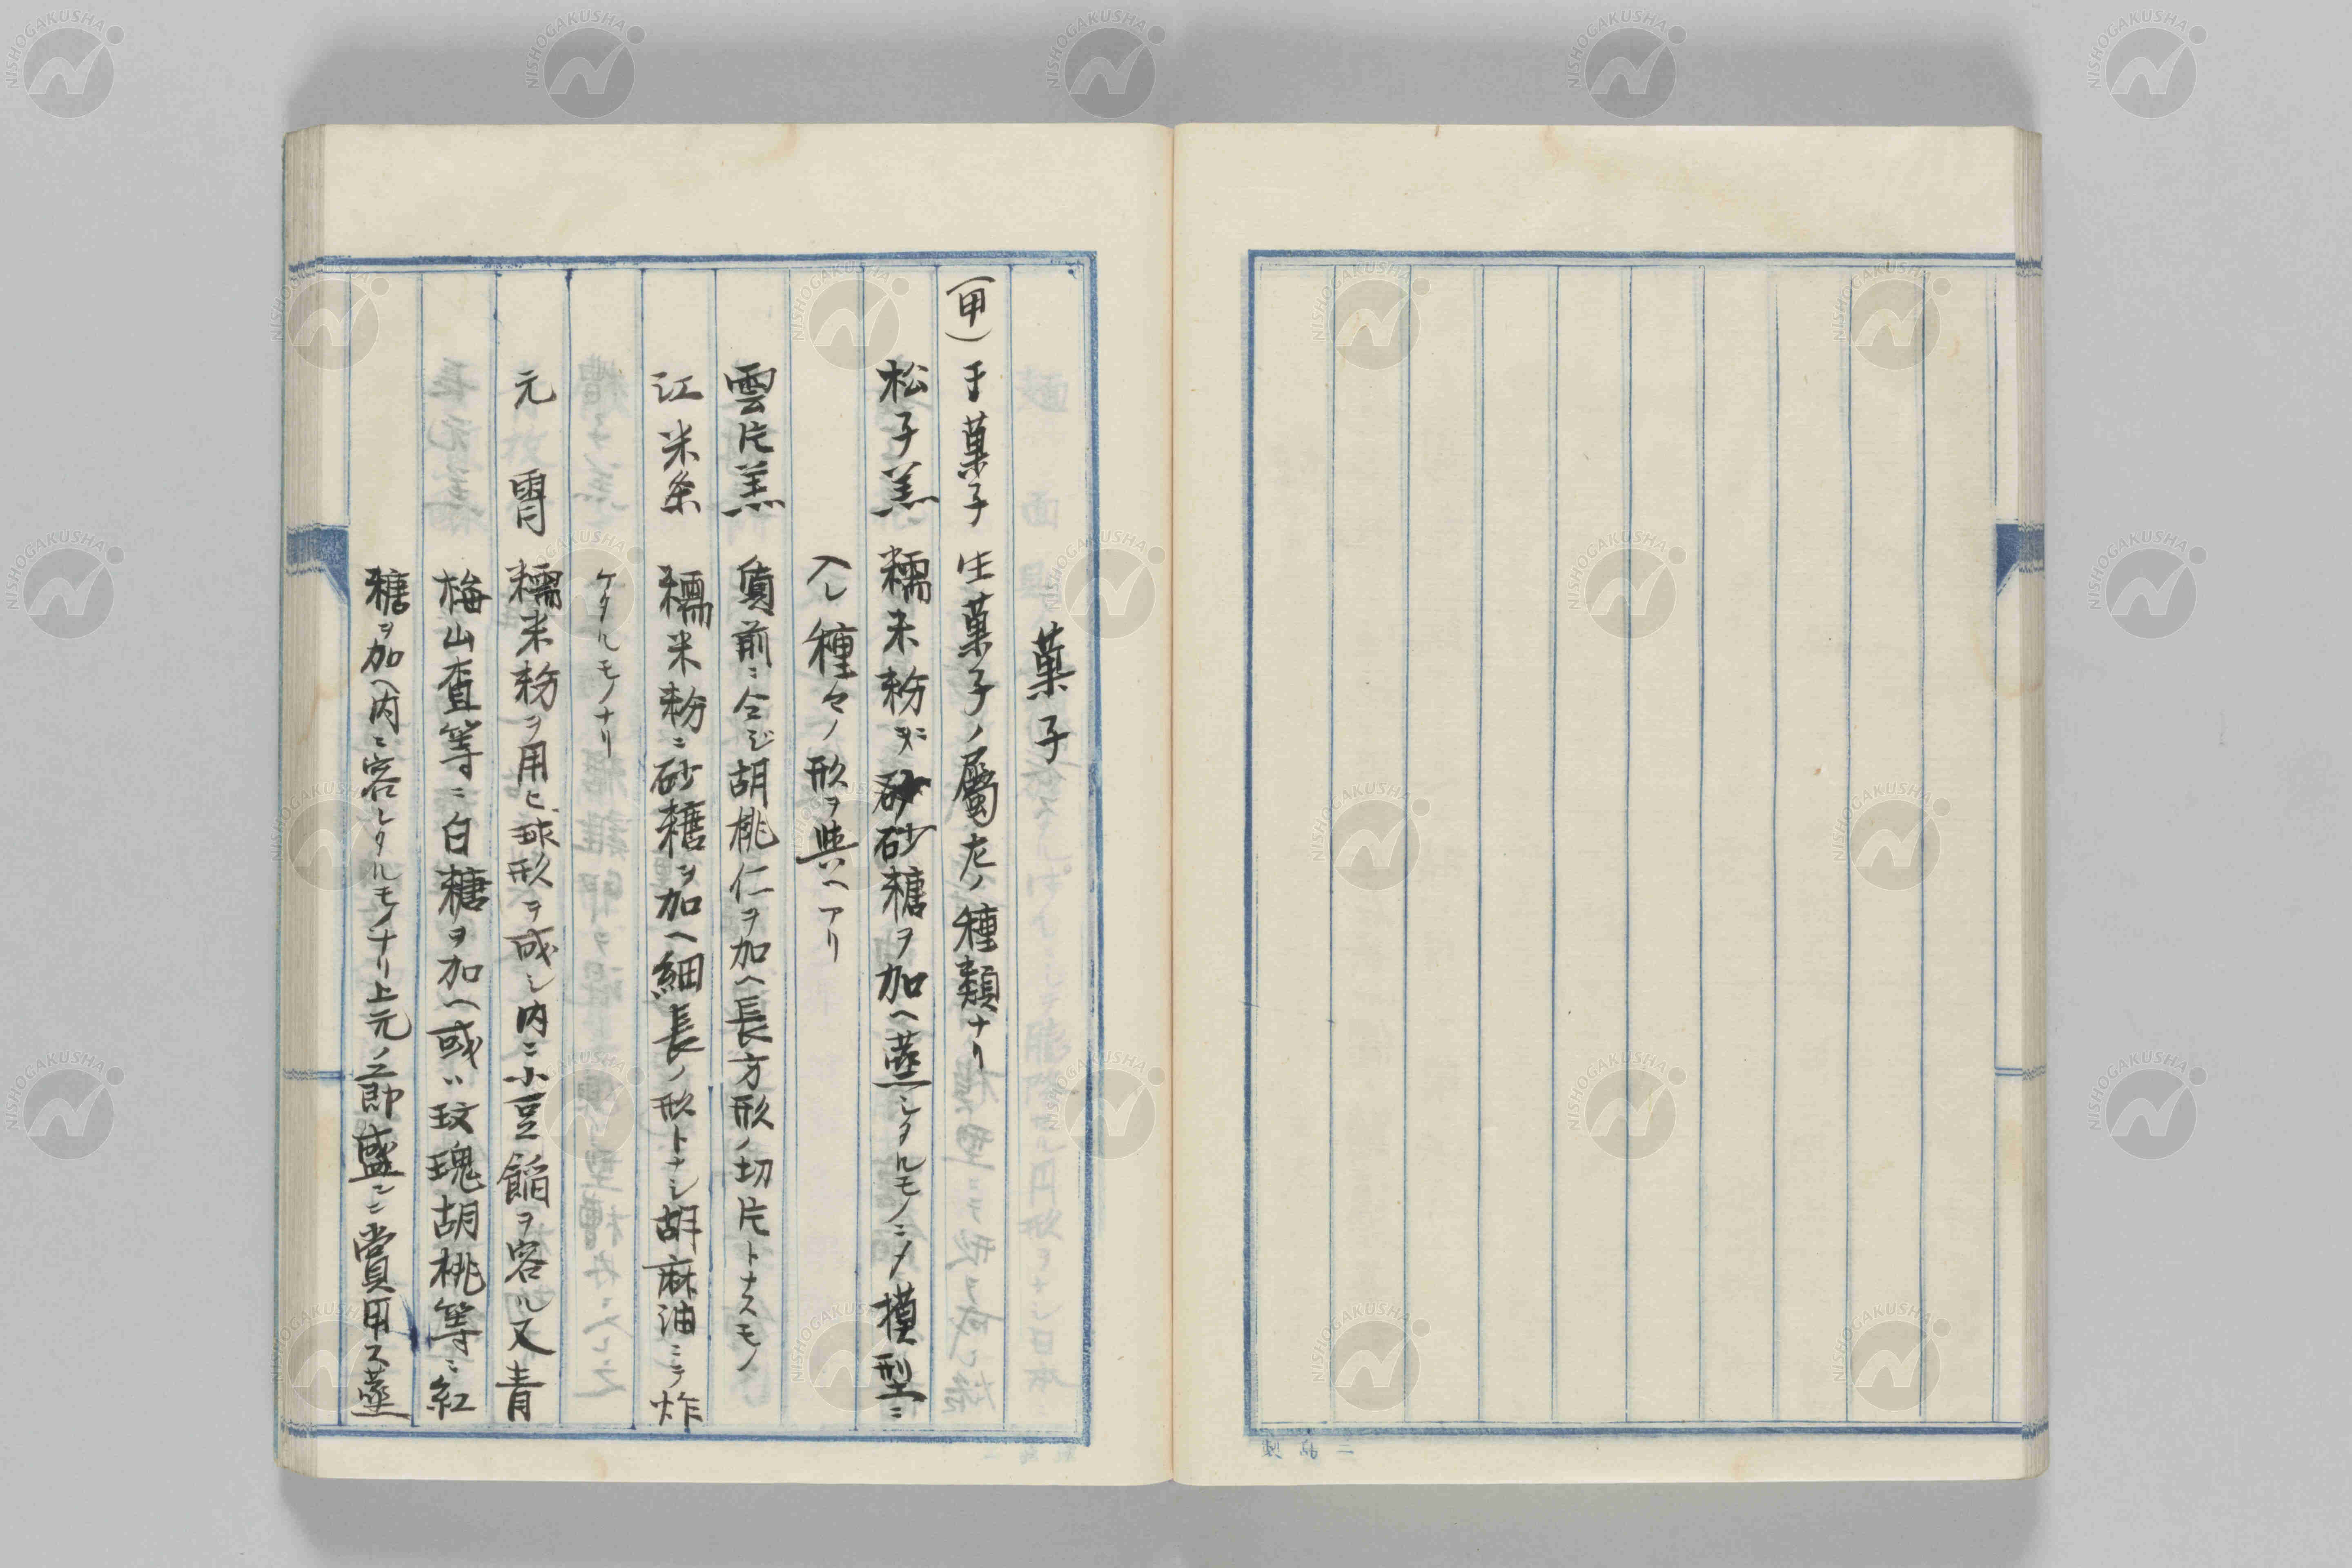 菓子
(甲)干菓子 生菓子ノ屬左ノ種類ナリ
松子羔 糯米粉ニ砂糖ヲ加ヘ蒸シタルモノニメ模型ニ
入レ種々ノ形ヲ與ヘアリ
雲片羔 質前ニ仝ジ胡桃仁ヲ加ヘ長方形ノ切片トナスモノ
江米条 糯米粉ニ砂糖ヲ加ヘ細長ノ形トナシ胡麻油ニテ炸
ケタルモノナリ
元宵 糯米粉ヲ用ヒ球形ヲ成シ内ニ小豆餡ヲ容ル又青
梅山査等ニ白糖ヲ加ヘ或ハ玫瑰胡桃等ニ紅
糖ヲ加ヘ内ニ容レタルモノナリ上元ノ節盛ンニ賞用ス蒸
NISHOGAKUSHA